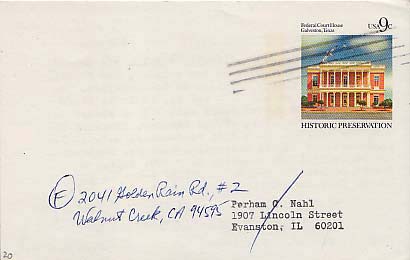 Federal Court House
Galveston, Texas
USA 9c
HISTORIC PRESERVATION
F 2041 Golden Rain Rd., #2
Walnut Creek, CA 94595
Perham C. Nahl
1907 Lincoln Street
Evanston, IL 60201
20